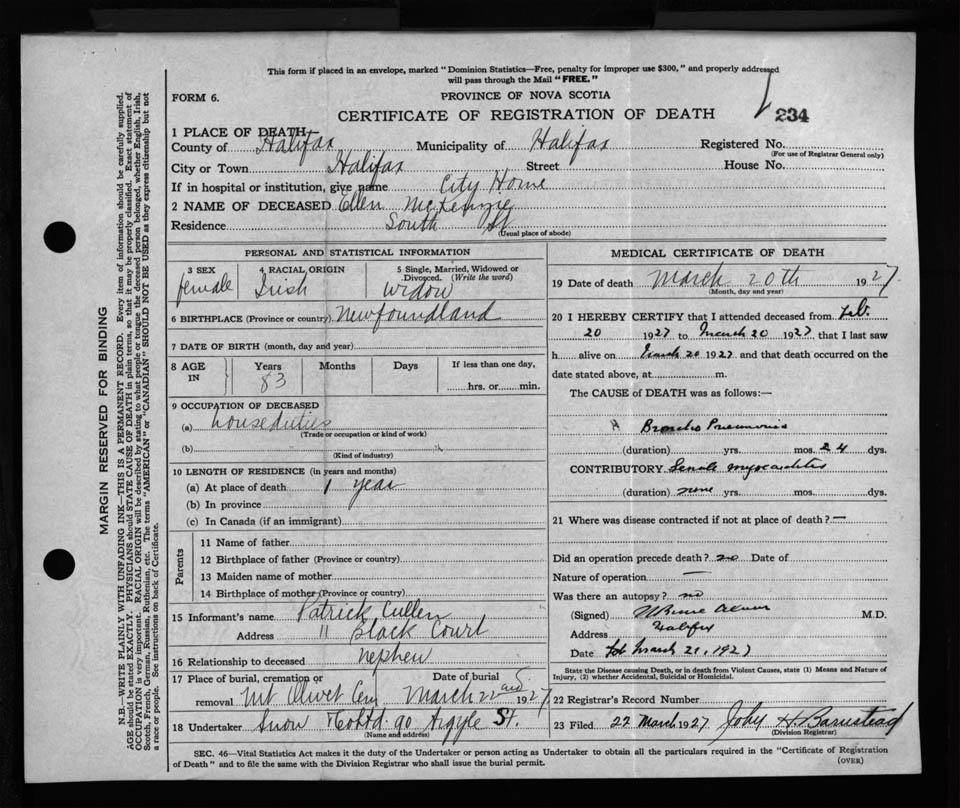 This form if placed in an envelope, marked "Dominion Statistics—Free, penalty for improper use $300," and properly addressed
will pass through the Mail "FREE."
FORM 6.
PROVINCE OF NOVA SCOTIA
CERTIFICATE OF REGISTRATION OF DEATH
234
1 PLACE OF DEATH
County of Halifax Municipality of Halifax Registered No.
(For use of Registrar General only)
City or Town Halifax Street House No.
If in hospital or institution, give name City Home
2 NAME OF DECEASED Ellen McKenzie
Residence South St
(Usual place of abode)
PERSONAL AND STATISTICAL INFORMATION
3 SEX 4 RACIAL ORIGIN 5 Single, Married, Widowed or
Divorced. (Write the word)
female Irish widow
6 BIRTHPLACE (Province or country) Newfoundland
7 DATE OF BIRTH (month, day and year)
8 AGE IN Years Months Days If less than one day,
83 hrs. or min.
9 OCCUPATION OF DECEASED
(a) house duties
(Trade or occupation or kind of work)
(b)
(Kind of industry)
10 LENGTH OF RESIDENCE (in years and months)
(a) At place of death 1 year
(b) In province
(c) In Canada (if an immigrant)
Parents
11 Name of father
12 Birthplace of father (Province or country)
13 Maiden name of mother
14 Birthplace of mother (Province or country)
15 Informant's name Patrick Cullen
Address 11 Black Court
16 Relationship to deceased nephew
17 Place of burial, cremation or Date of burial
removal Mt Olivet Cem March 22 1927
18 Undertaker Snow & Co Ltd 90 Argyle St.
(Name and address)
MEDICAL CERTIFICATE OF DEATH
19 Date of death March 20th 1927
(Month, day and year)
20 I HEREBY CERTIFY that I attended deceased from Feb.
20 1927 to March 20 1927, that I last saw
h alive on March 20 1927 and that death occurred on the
date stated above, at m.
The CAUSE OF DEATH was as follows:
Broncho Pneumonia
(duration) yrs. mos. 24 dys.
CONTRIBUTORY Senile myocarditis
(duration) yrs. mos. dys.
21 Where was disease contracted if not at place of death? —
Did an operation precede death? no Date of
Nature of operation —
Was there an autopsy? no
(Signed) M.D.
Address Halifax
Date March 21, 1927
State the Disease causing Death, or in death from Violent Causes, state (1) Means and Nature of
Injury, (2) whether Accidental, Suicidal or Homicidal.
22 Registrar's Record Number
23 Filed 22 March 1927 John H Barnstead
(Division Registrar)
SEC. 46—Vital Statistics Act makes it the duty of the Undertaker or person acting as Undertaker to obtain all the particulars required in the "Certificate of Registration
of Death" and to file the same with the Division Registrar who shall issue the burial permit.
(OVER)
MARGIN RESERVED FOR BINDING
N.B.—WRITE PLAINLY WITH UNFADING INK—THIS IS A PERMANENT RECORD. Every item of information should be carefully supplied.
AGE should be stated EXACTLY. PHYSICIANS should STATE CAUSE OF DEATH in plain terms, so that it may be properly classified. Exact statement of
OCCUPATION is very important. RACIAL ORIGIN will be described by stating to what people or tongue the deceased person belonged, whether English, Irish,
Scotch, French, German, Russian, Ruthenian, etc. The terms "AMERICAN" or "CANADIAN" SHOULD NOT BE USED as they express citizenship but not
a race or people. See instructions on back of Certificate.